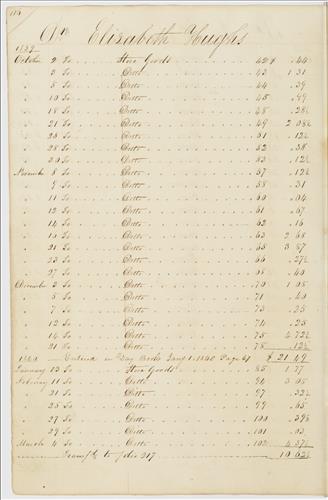 Dr Elizabeth Hughs
1839
October 2 To Stue Goods 42 $ .44
" 3 To Ditto 43 1 31
" 8 To Ditto 44 .39
" 10 To Ditto 45 .49
" 18 To Ditto 48 .28½
" 21 To Ditto 49 2 08½
" 25 To Ditto 51 .12½
" 28 To Ditto 52 .38
" 30 To Ditto 53 .12½
November 8 To Ditto 57 .12½
" 9 To Ditto 58 .31
" 11 To Ditto 60 .04
" 12 To Ditto 61 .67
" 14 To Ditto 62 .16
" 19 To Ditto 63 2 68
" 21 To Ditto 65 3 87
" 23 To Ditto 66 .27½
" 27 To Ditto 68 .40
December 3 To Ditto 70 1 08
" 5 To Ditto 71 .40
" 7 To Ditto 73 .25
" 12 To Ditto 74 .25
" 14 To Ditto 75 4 72½
" 21 To Ditto 78 .12½
1840 Entered in Day Book Jany 1, 1840 Page 61 $ 21.49
January 13 To Stue Goods 85 1 77
February 11 To Ditto 94 3 05
" 21 To Ditto 97 .32½
" 25 To Ditto 99 .65
" 27 To Ditto 100 .39½
" 29 To Ditto 101 .03
March 4 To Ditto 102 4 37½
Transfd to folio 317 10 62½